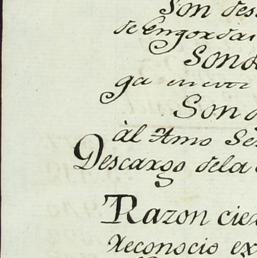 Son des
de Engordar
Son d
ga
Son d
àl Amo Se
Descargo dela
Razon cier
Reconocio ex